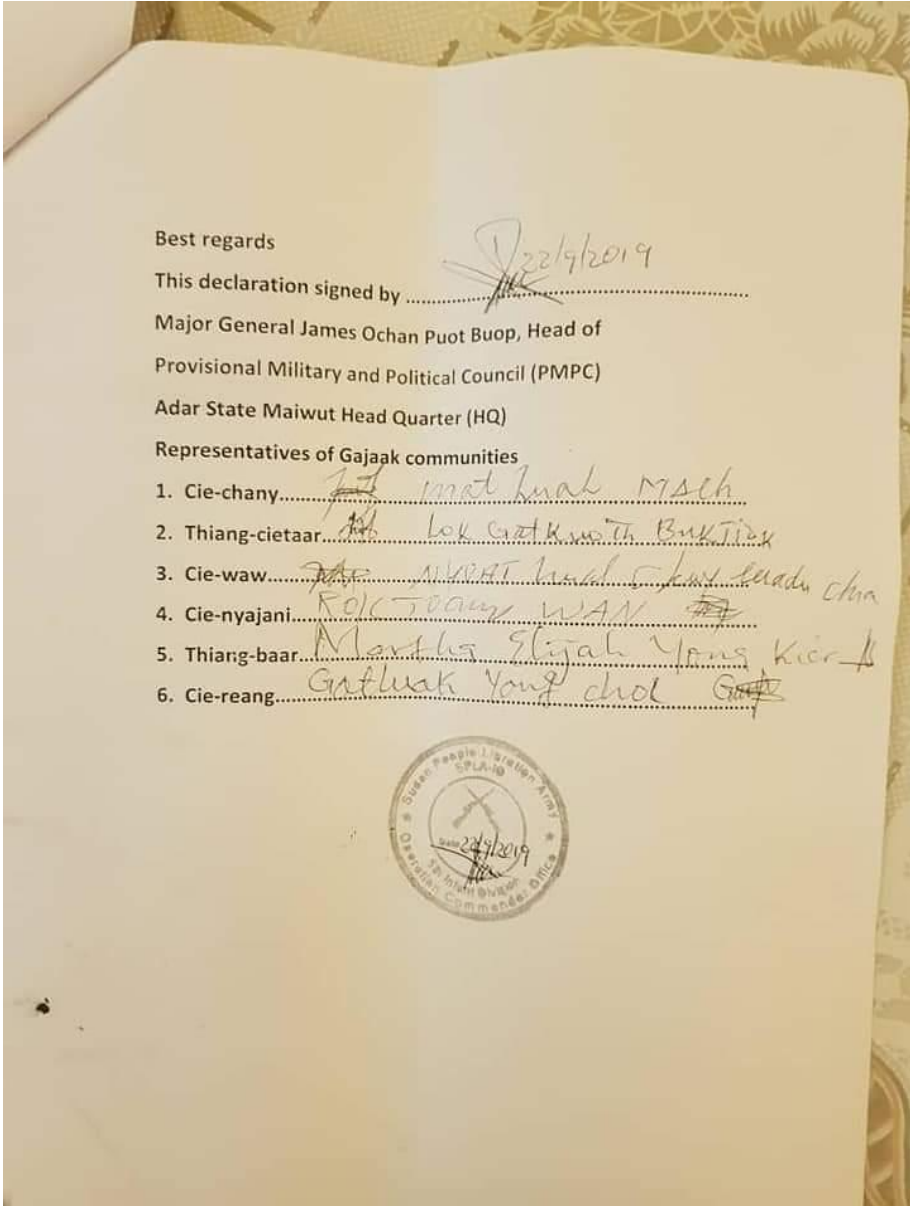 Best regards
22/9/2019
This declaration signed by ..........................................................
Major General James Ochan Puot Buop, Head of
Provisional Military and Political Council (PMPC)
Adar State Maiwut Head Quarter (HQ)
Representatives of Gajaak communities
1. Cie-chany........
2. Thiang-cietaar.... Lok Gatkwoth
3. Cie-waw........
4. Cie-nyajani.... WAN
5. Thiang-baar.... Martha Elijah Yong Kier
6. Cie-reang.... Gatluak Yong chol
Sudan People Libration Army
SPLA-IO
Date 22/9/2019
Operation Commander Office